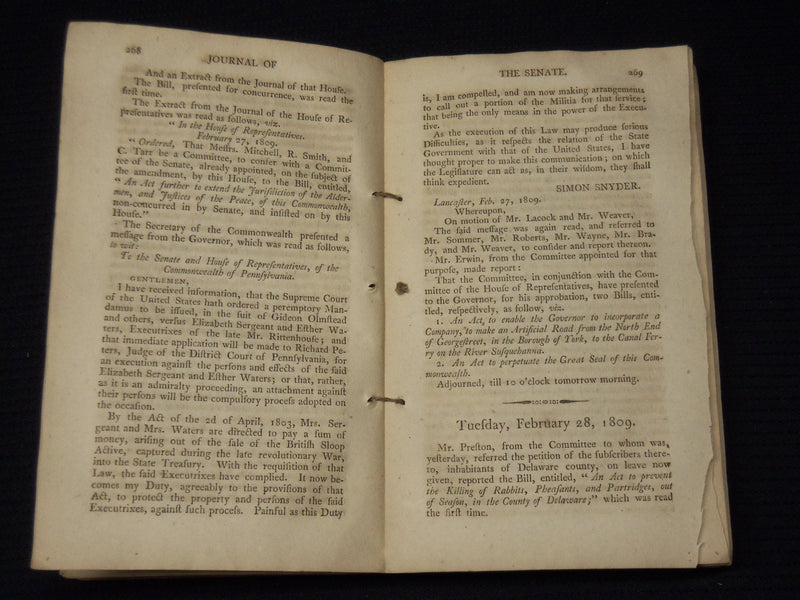 268
JOURNAL OF
And an Extract from the Journal of that House.
The Bill, presented for concurrence, was read the
first time.
The Extract from the Journal of the House of Re-
presentatives was read as follows, viz.
" In the House of Representatives.
February 27, 1809.
" Ordered, That Messrs. Mitchell, R. Smith, and
C. Tarr be a Committee, to confer with a Commit-
tee of the Senate, already appointed, on the subject of
the amendment, by this House, to the Bill, entitled,
" An Act further to extend the Jurisdiction of the Alder-
men, and Justices of the Peace, of this Commonwealth,
non-concurred in by Senate, and insisted on by this
House."
The Secretary of the Commonwealth presented a
message from the Governor, which was read as follows,
to wit:
To the Senate and House of Representatives, of the
Commonwealth of Pennsylvania.
GENTLEMEN,
I have received information, that the Supreme Court
of the United States hath ordered a peremptory Man-
damus to be issued, in the suit of Gideon Olmstead
and others, versus Elizabeth Sergeant and Esther Wa-
ters, Executrixes of the late Mr. Rittenhouse; and
that immediate application will be made to Richard Pe-
ters, Judge of the District Court of Pennsylvania, for
an execution against the persons and effects of the said
Elizabeth Sergeant and Esther Waters; or that, rather,
as it is an admiralty proceeding, an attachment against
their persons will be the compulsory process adopted on
the occasion.
By the Act of the 2d of April, 1803, Mrs. Ser-
geant and Mrs. Waters are directed to pay a sum of
money, arising out of the sale of the British Sloop
Active, captured during the late revolutionary War,
into the State Treasury. With the requisition of that
Law, the said Executrixes have complied. It now be-
comes my Duty, agreeably to the provisions of that
Act, to protect the property and persons of the said
Executrixes, against such process. Painful as this Duty
THE SENATE.
269
is, I am compelled, and am now making arrangements
to call out a portion of the Militia for that service;
that being the only means in the power of the Execu-
tive.
As the execution of this Law may produce serious
Difficulties, as it respects the relation of the State
Government with that of the United States, I have
thought proper to make this communication; on which
the Legislature can act as, in their wisdom, they shall
think expedient.
SIMON SNYDER.
Lancaster, Feb. 27, 1809.
Whereupon,
On motion of Mr. Lacock and Mr. Weaver,
The said message was again read, and referred to
Mr. Sommer, Mr. Roberts, Mr. Wayne, Mr. Bra-
dy, and Mr. Weaver, to consider and report thereon.
Mr. Erwin, from the Committee appointed for that
purpose, made report:
That the Committee, in conjunction with the Com-
mittee of the House of Representatives, have presented
to the Governor, for his approbation, two Bills, enti-
tled, respectively, as follow, viz.
1. An Act, to enable the Governor to incorporate a
Company, to make an Artificial Road from the North End
of Georgestreet, in the Borough of York, to the Canal Fer-
ry on the River Susquehanna.
2. An Act to perpetuate the Great Seal of this Com-
monwealth.
Adjourned, till 10 o'clock tomorrow morning.
Tuesday, February 28, 1809.
Mr. Preston, from the Committee to whom was,
yesterday, referred the petition of the subscribers there-
to, inhabitants of Delaware county, on leave now
given, reported the Bill, entitled, " An Act to prevent
the Killing of Rabbits, Pheasants, and Partridges, out
of Season, in the County of Delaware;" which was read
the first time.